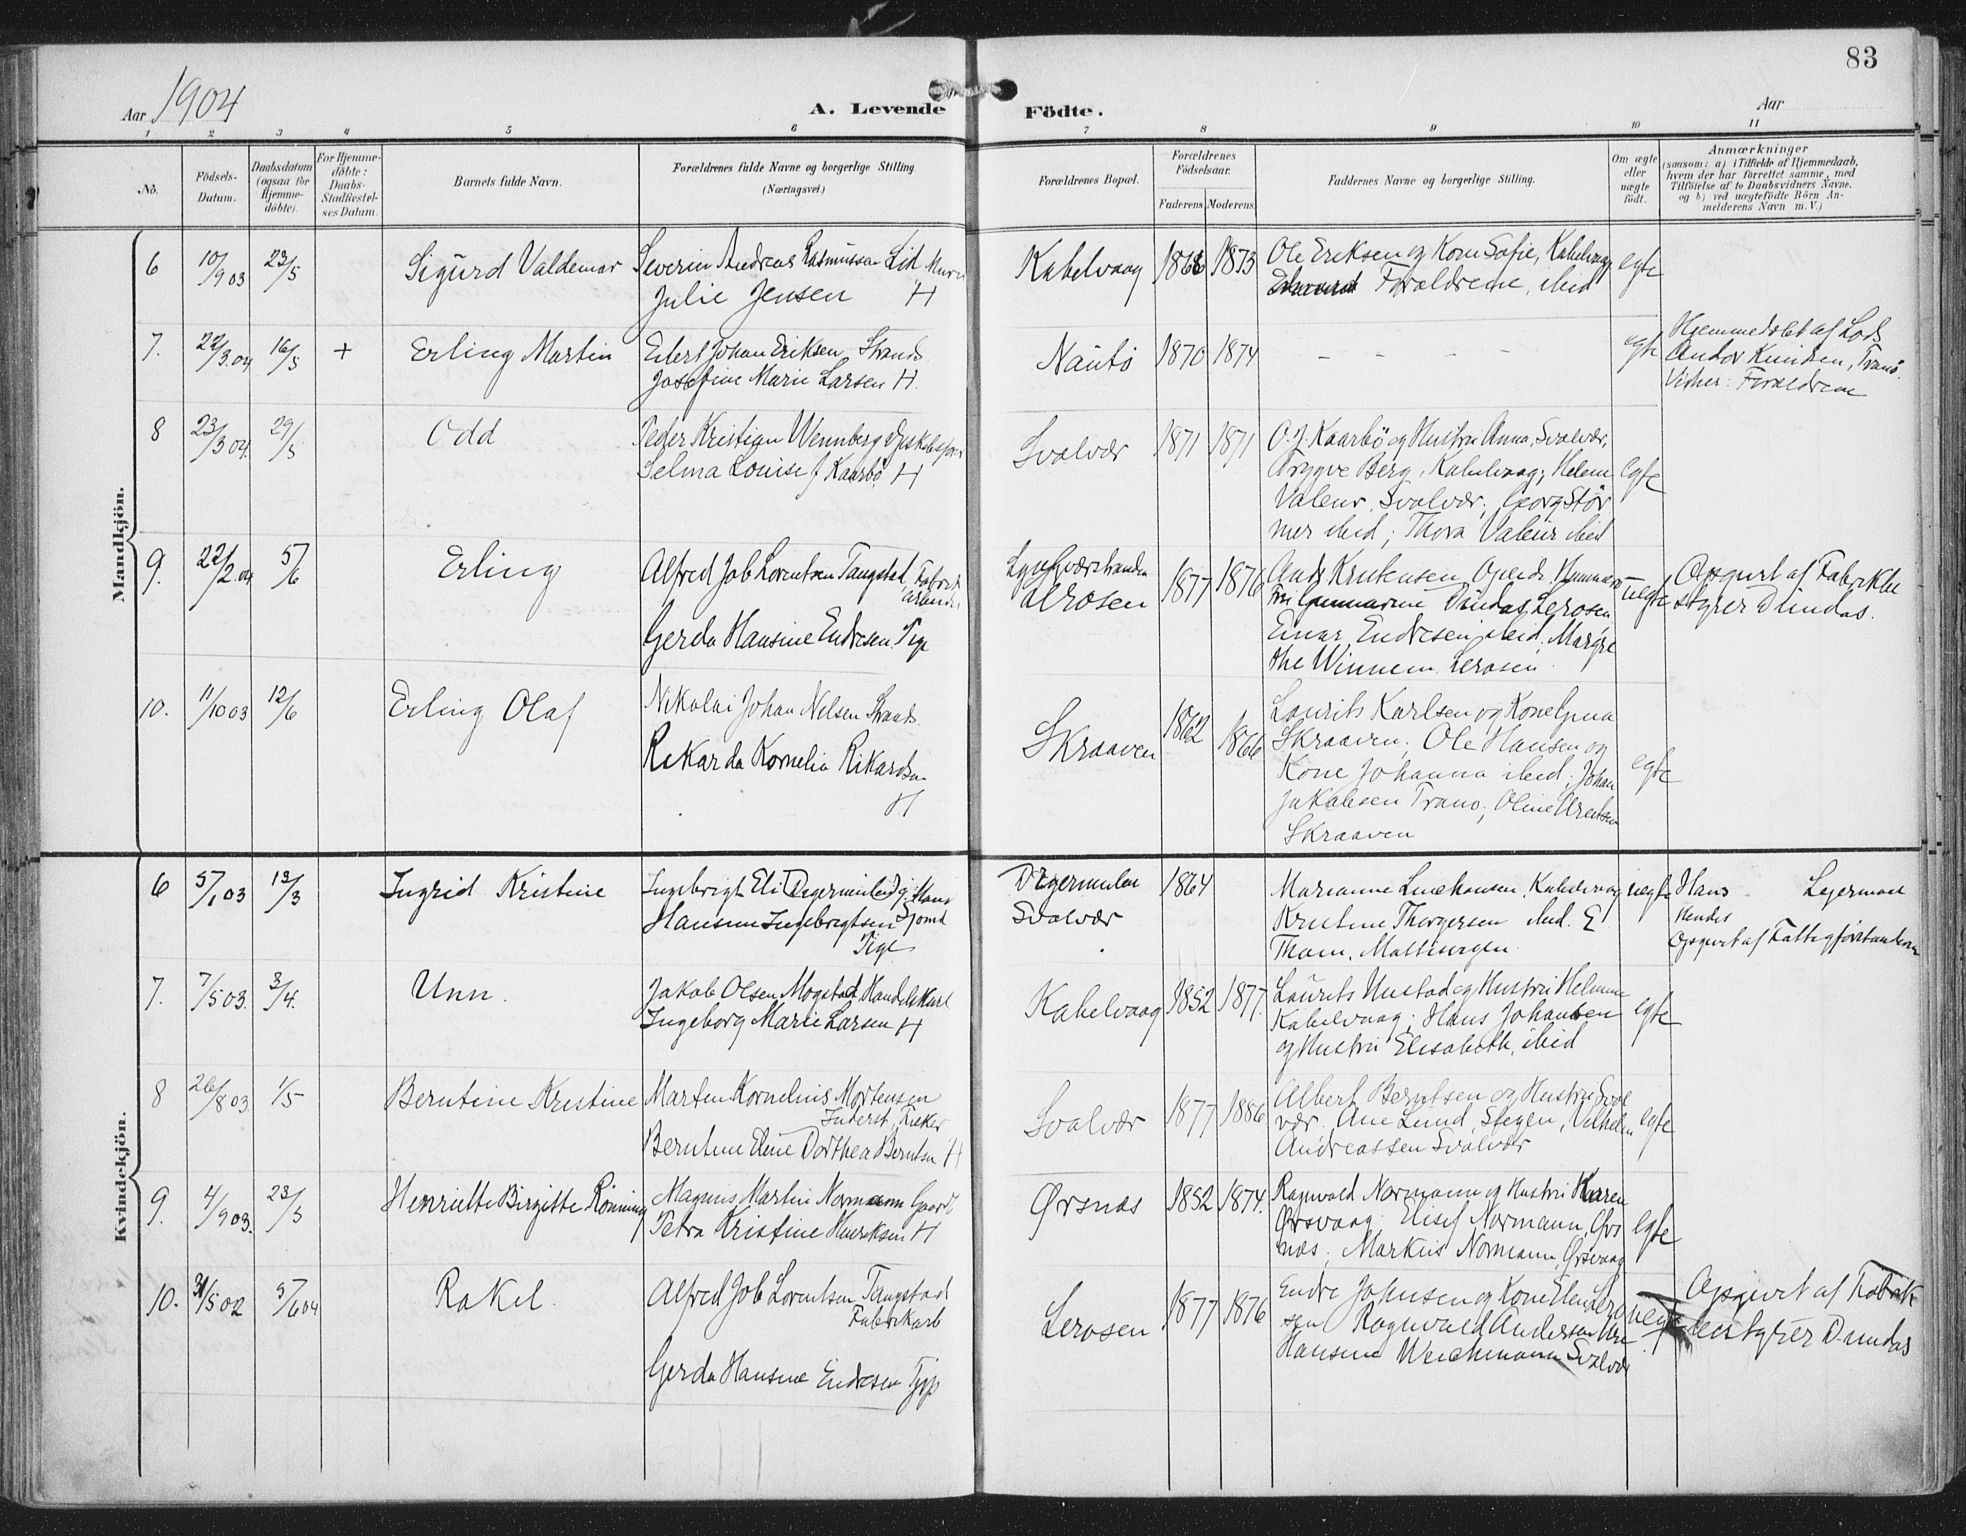 83
Aar 1904
A. Levende Födte.
Aar
1 2 3 4 5 6 7 8 9 10 11
No.
Födsels-
Datum.
Daabsdatum
(ogsaa for
Hjemme-
döbte).
For Hjemme-
döbte:
Daabs-
Stadfestel-
ses Datum.
Barnets fulde Navn.
Forældrenes fulde Navne og borgerlige Stilling.
(Næringsvei.)
Forældrenes Bopæl.
Forældrenes
Födselsaar.
Faderens. Moderens.
Faddernes Navne og borgerlige Stilling.
Om ægte
eller
uægte
födt.
Anmærkninger
(saasom: a) i Tilfælde af Hjemmedaab,
hvem der har forrettet samme, med
Tilföielse af to Daabsvidners Navne,
og b) ved uægtefödte Börn An-
melderens Navn m. V.)
Mandkjön.
6 10/9 03 23/5 Sigurd Valdemar
Severin Andreas Rasmussen Lid
Julie Jensen H
Kabelvaag 1873
Ole Eriksen og Kone Sofie, Kabelvaag
Forældrene, ibid
egte
7. 22/3.04 16/5 + Erling Martin
Edert Johan Eriksen, Strands
Josefine Marie Larsen H.
Nautö 1870 1874
– – – –
egte
Hjemmedöbt af Lods
Andor Knudsen, Tranö.
Vidner: Forældrene
8 23/3 04. 29/5 Odd
Peder Kristian Wennberg
Selma Louise f. Kaarbö. H
Svolvær 1871 1871
O. J. Kaarbö og Hustru Anna, Svolvær,
Trygve Berg, Kabelvaag; Helene
Valeur, Svolvær; Georg Stör
mer ibid; Thora Valeur ibid
egte
9. 22/2.04 5/6 Erling
Alfred Job Lorentsen Tangstad, Fabrik
arbeider
Gerda Hansine Endresen Pige
Lerosen 1877 1876
Andr. Kristensen
Dundas, Lerosen
Einar Endresen, ibid, Margre
the Winnem Lerosen.
uegte
Opgivet af Fabrikbe
styrer Dundas.
10. 11/10 03 12/6 Erling Olaf
Nikolai Johan Nelsen Strands.
Rikarda Kornelia Rikardsen
H
Skraaven 1862 1866
Laurits Karlsen og Kone
Skraaven; Ole Hansen og
Kone Johanna ibid; Johan
Jakobsen Tranö; Oline
Skraaven
egte
Kvindekjön.
6 5/1 03 13/3 Ingrid Kristine
Ingebrigt Eli Degermulen
Hansine Ingebrigtsen
Pige
Degermulen
Svolvær
1864
Marianne Kabelvaag
Kristine Thorgersen ibid. E
Thom. Mathisen
uegte
Hans Leiermaal
hendes
Opgivet af Fattigforstanderen
7. 7/5 03. 3/4. Unn.
Jakob Olsen Mogstad Handelskarl
Ingeborg Marie Larsen H
Kabelvaag 1852 1877.
Laurits Hustad og Hustru Helmine
Kabelvaag; Hans Johansen
og Hustru Elisabeth, ibid
egte
8 26/8 03. 1/5 Berntine Kristine
Marten Kornelius Mortensen
Inderst, Fisker
Berntine Eline Dorthea Berntsen H
Svolvær 1877 1886
Albert Berntsen og Hustru Svol
vær. Ane Lund, Stegen, Vilhelm
Andreassen Svolvær
egte
9. 4/9 03. 23/5 Henriette Birgitte Rönning
Magnus Martin Normann Gaardb.
Petra Kristine Henriksen H
Örsnæs 1852 1874.
Ragnvald Normann og Hustru Karen
Örsvaag; Elisef Normann, Örs
næs; Markus Normann, Örsvaag
egte
10. 31/5 02 5/6 04 Rakel.
Alfred Job Lorentsen Tangstad
Fabrikarb
Gerda Hansine Endresen Pige
Lerosen 1877 1876
Endre Johnsen og Kone Elen Lero
sen Ragnvald Andersen
Hansine Weichmann Svolvær
uegte
Opgivet af Fabrik
bestyrer Dundas